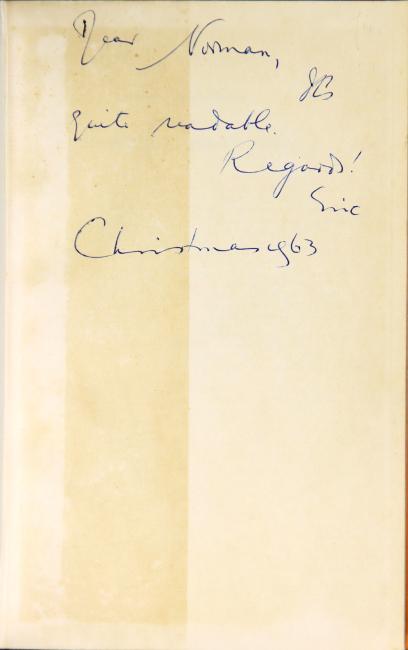 Dear Norman,
It's
quite readable.
Regards!
Eric
Christmas 1963